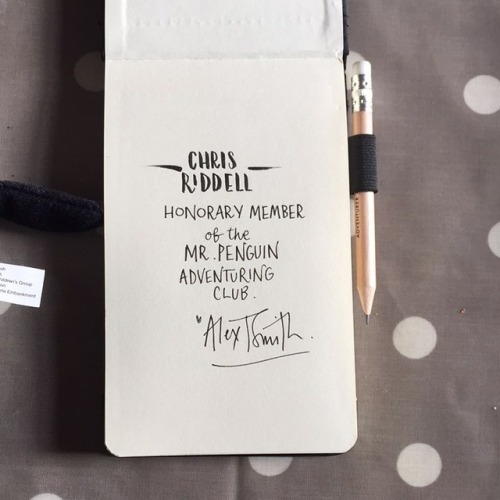 CHRIS
RIDDELL
HONORARY MEMBER
of the
MR. PENGUIN
ADVENTURING
CLUB.
"Alex T Smith.
ADVENTURER
Children's Group
Embankment